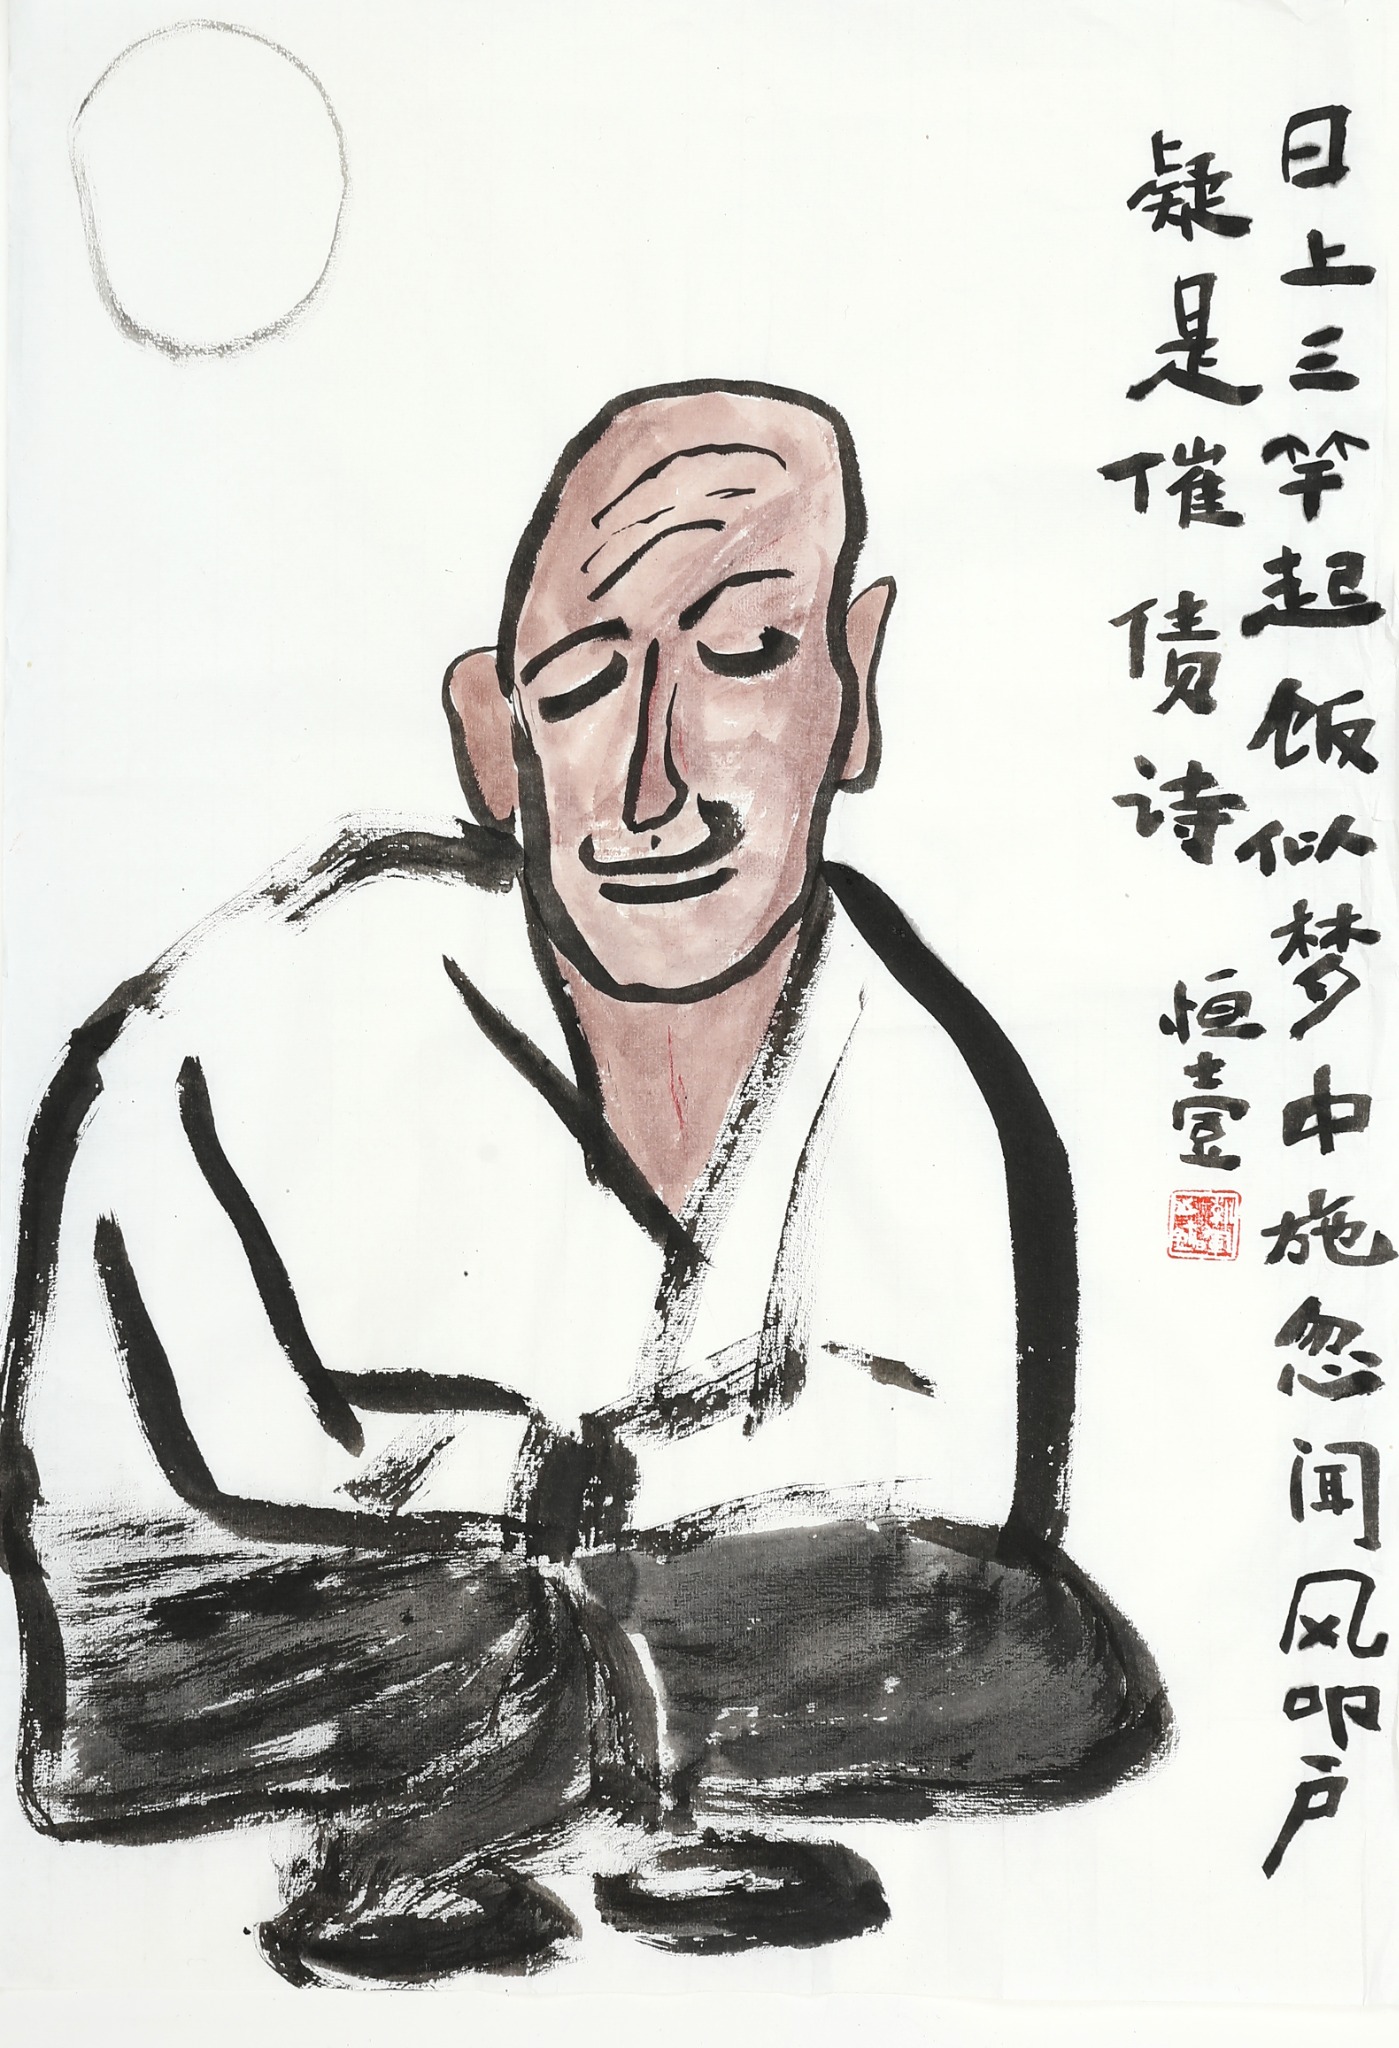 日上三竿起饭似梦中施忽闻风叩户
疑是催债诗
恒壹